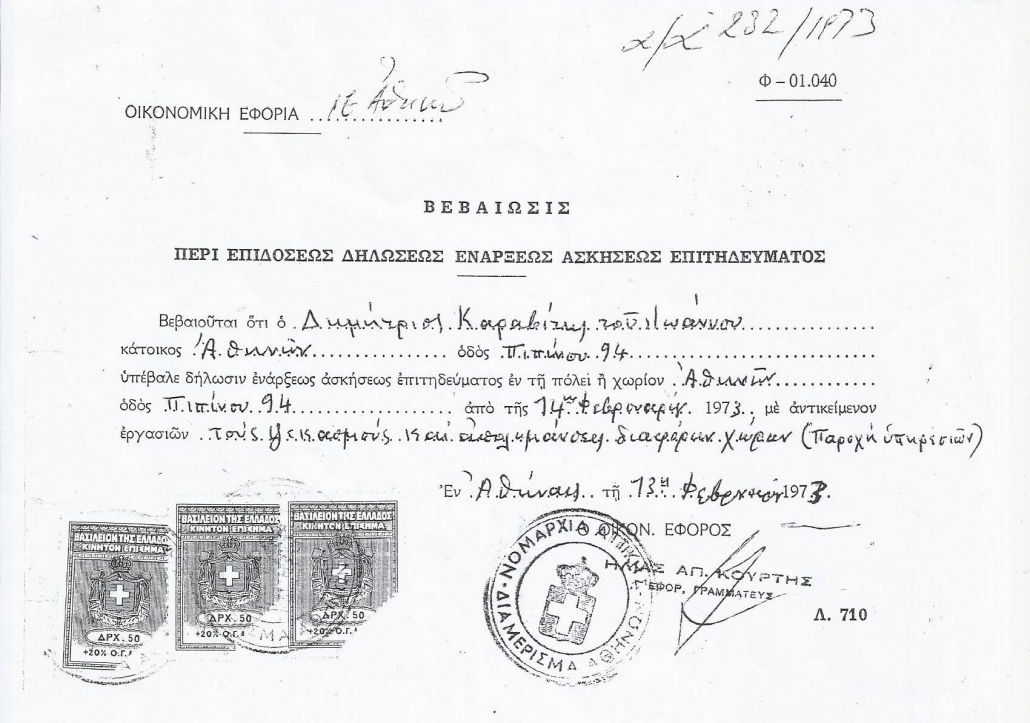 α/α 232/1973
Φ – 01.040
ΟΙΚΟΝΟΜΙΚΗ ΕΦΟΡΙΑ ΙΕ Ἀθηνῶν
ΒΕΒΑΙΩΣΙΣ
ΠΕΡΙ ΕΠΙΔΟΣΕΩΣ ΔΗΛΩΣΕΩΣ ΕΝΑΡΞΕΩΣ ΑΣΚΗΣΕΩΣ ΕΠΙΤΗΔΕΥΜΑΤΟΣ
Βεβαιοῦται ὅτι ὁ Δημήτριος Καραβίτης τοῦ Ἰωάννου
κάτοικος Ἀθηνῶν ὁδὸς Πιπίνου 94
ὑπέβαλε δήλωσιν ἐνάρξεως ἀσκήσεως ἐπιτηδεύματος ἐν τῇ πόλει ἢ χωρίον Ἀθηνῶν
ὁδὸς Πιπίνου 94 ἀπὸ τῆς 14ης Φεβρουαρίου 1973, μὲ ἀντικείμενον
ἐργασιῶν τοὺς ψεκασμούς και ἀπολυμάνσεις διαφόρων χώρων (Παροχή ὑπηρεσιῶν)
Ἐν Ἀθήναις τῇ 13η Φεβρουαρίου 1973
Ο ΟΙΚΟΝ. ΕΦΟΡΟΣ
ΗΛΙΑΣ ΑΠ. ΚΟΥΡΤΗΣ
ΕΦΟΡ. ΓΡΑΜΜΑΤΕΥΣ
Λ. 710
ΝΟΜΑΡΧΙΑ ΑΤΤΙΚΗΣ
ΔΙΑΜΕΡΙΣΜΑ ΑΘΗΝΩΝ
ΒΑΣΙΛΕΙΟΝ ΤΗΣ ΕΛΛΑΔΟΣ
ΚΙΝΗΤΟΝ ΕΠΙΣΗΜΑ
ΔΡΧ. 50
+20% Ο.Γ.Α
ΒΑΣΙΛΕΙΟΝ ΤΗΣ ΕΛΛΑΔΟΣ
ΚΙΝΗΤΟΝ ΕΠΙΣΗΜΑ
ΔΡΧ. 50
+20% Ο.Γ.Α
ΒΑΣΙΛΕΙΟΝ ΤΗΣ ΕΛΛΑΔΟΣ
ΚΙΝΗΤΟΝ ΕΠΙΣΗΜΑ
ΔΡΧ. 50
+20% Ο.Γ.Α